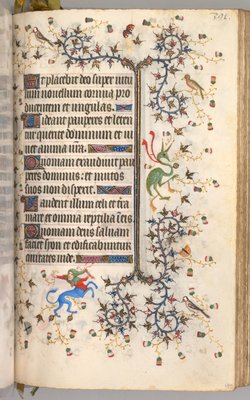 Et placebit deo super vitu
lum novellum cornua pro
ducentem et ungulas.
Videant pauperes et leten
tur querite dominum et vi
vet anima vr̃a.
Quoniam exaudivit pau
peres dominus: et vinctos
suos non despexit.
Laudent illum celi et ter̃
mare et omnia reptilia in eis
Quoniam deus salvam
faciet syon et edificabuntur
civitates iude